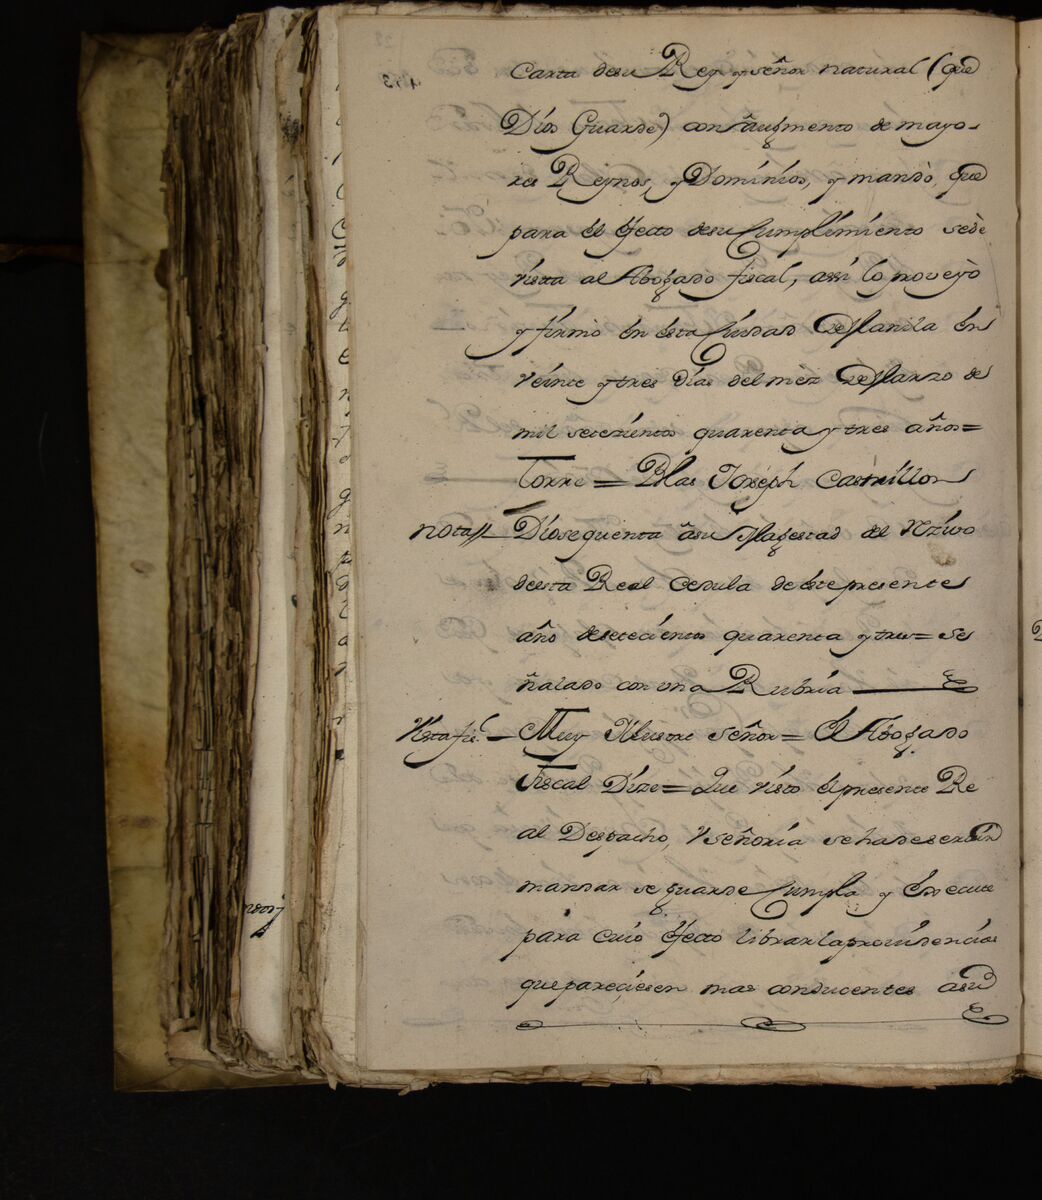 Carta desu Rey y señor natural (que
Dios Guarde) con augmento de mayo-
res Reynos, y Dominios, y mandò, que
para el efecto desu Cumplimiento sedè
vista al Abogado fiscal, assi lo proveyò
y firmò en esta Ciudad de Manila en
veinte y tres dias del mez de Marzo de
mil setezientos quarenta y tres años=
Torre = Blas Joseph Castrillon
nota // Diose quenta âsu Magestad del rezivo
desta Real Cedula de este presente
año desetecientos quarenta y tres= se
ñalado con una Rubria
Vista fis.l — Muy Illustre Señor= El Abogado
Fiscal Dize= Que visto el presente Re
al Despacho, Vseñoria se ha de servir
mandar se guarde Cumpla y Execute
para cuio efecto librar la providencias
que pareçiesen mas conducentes âsu